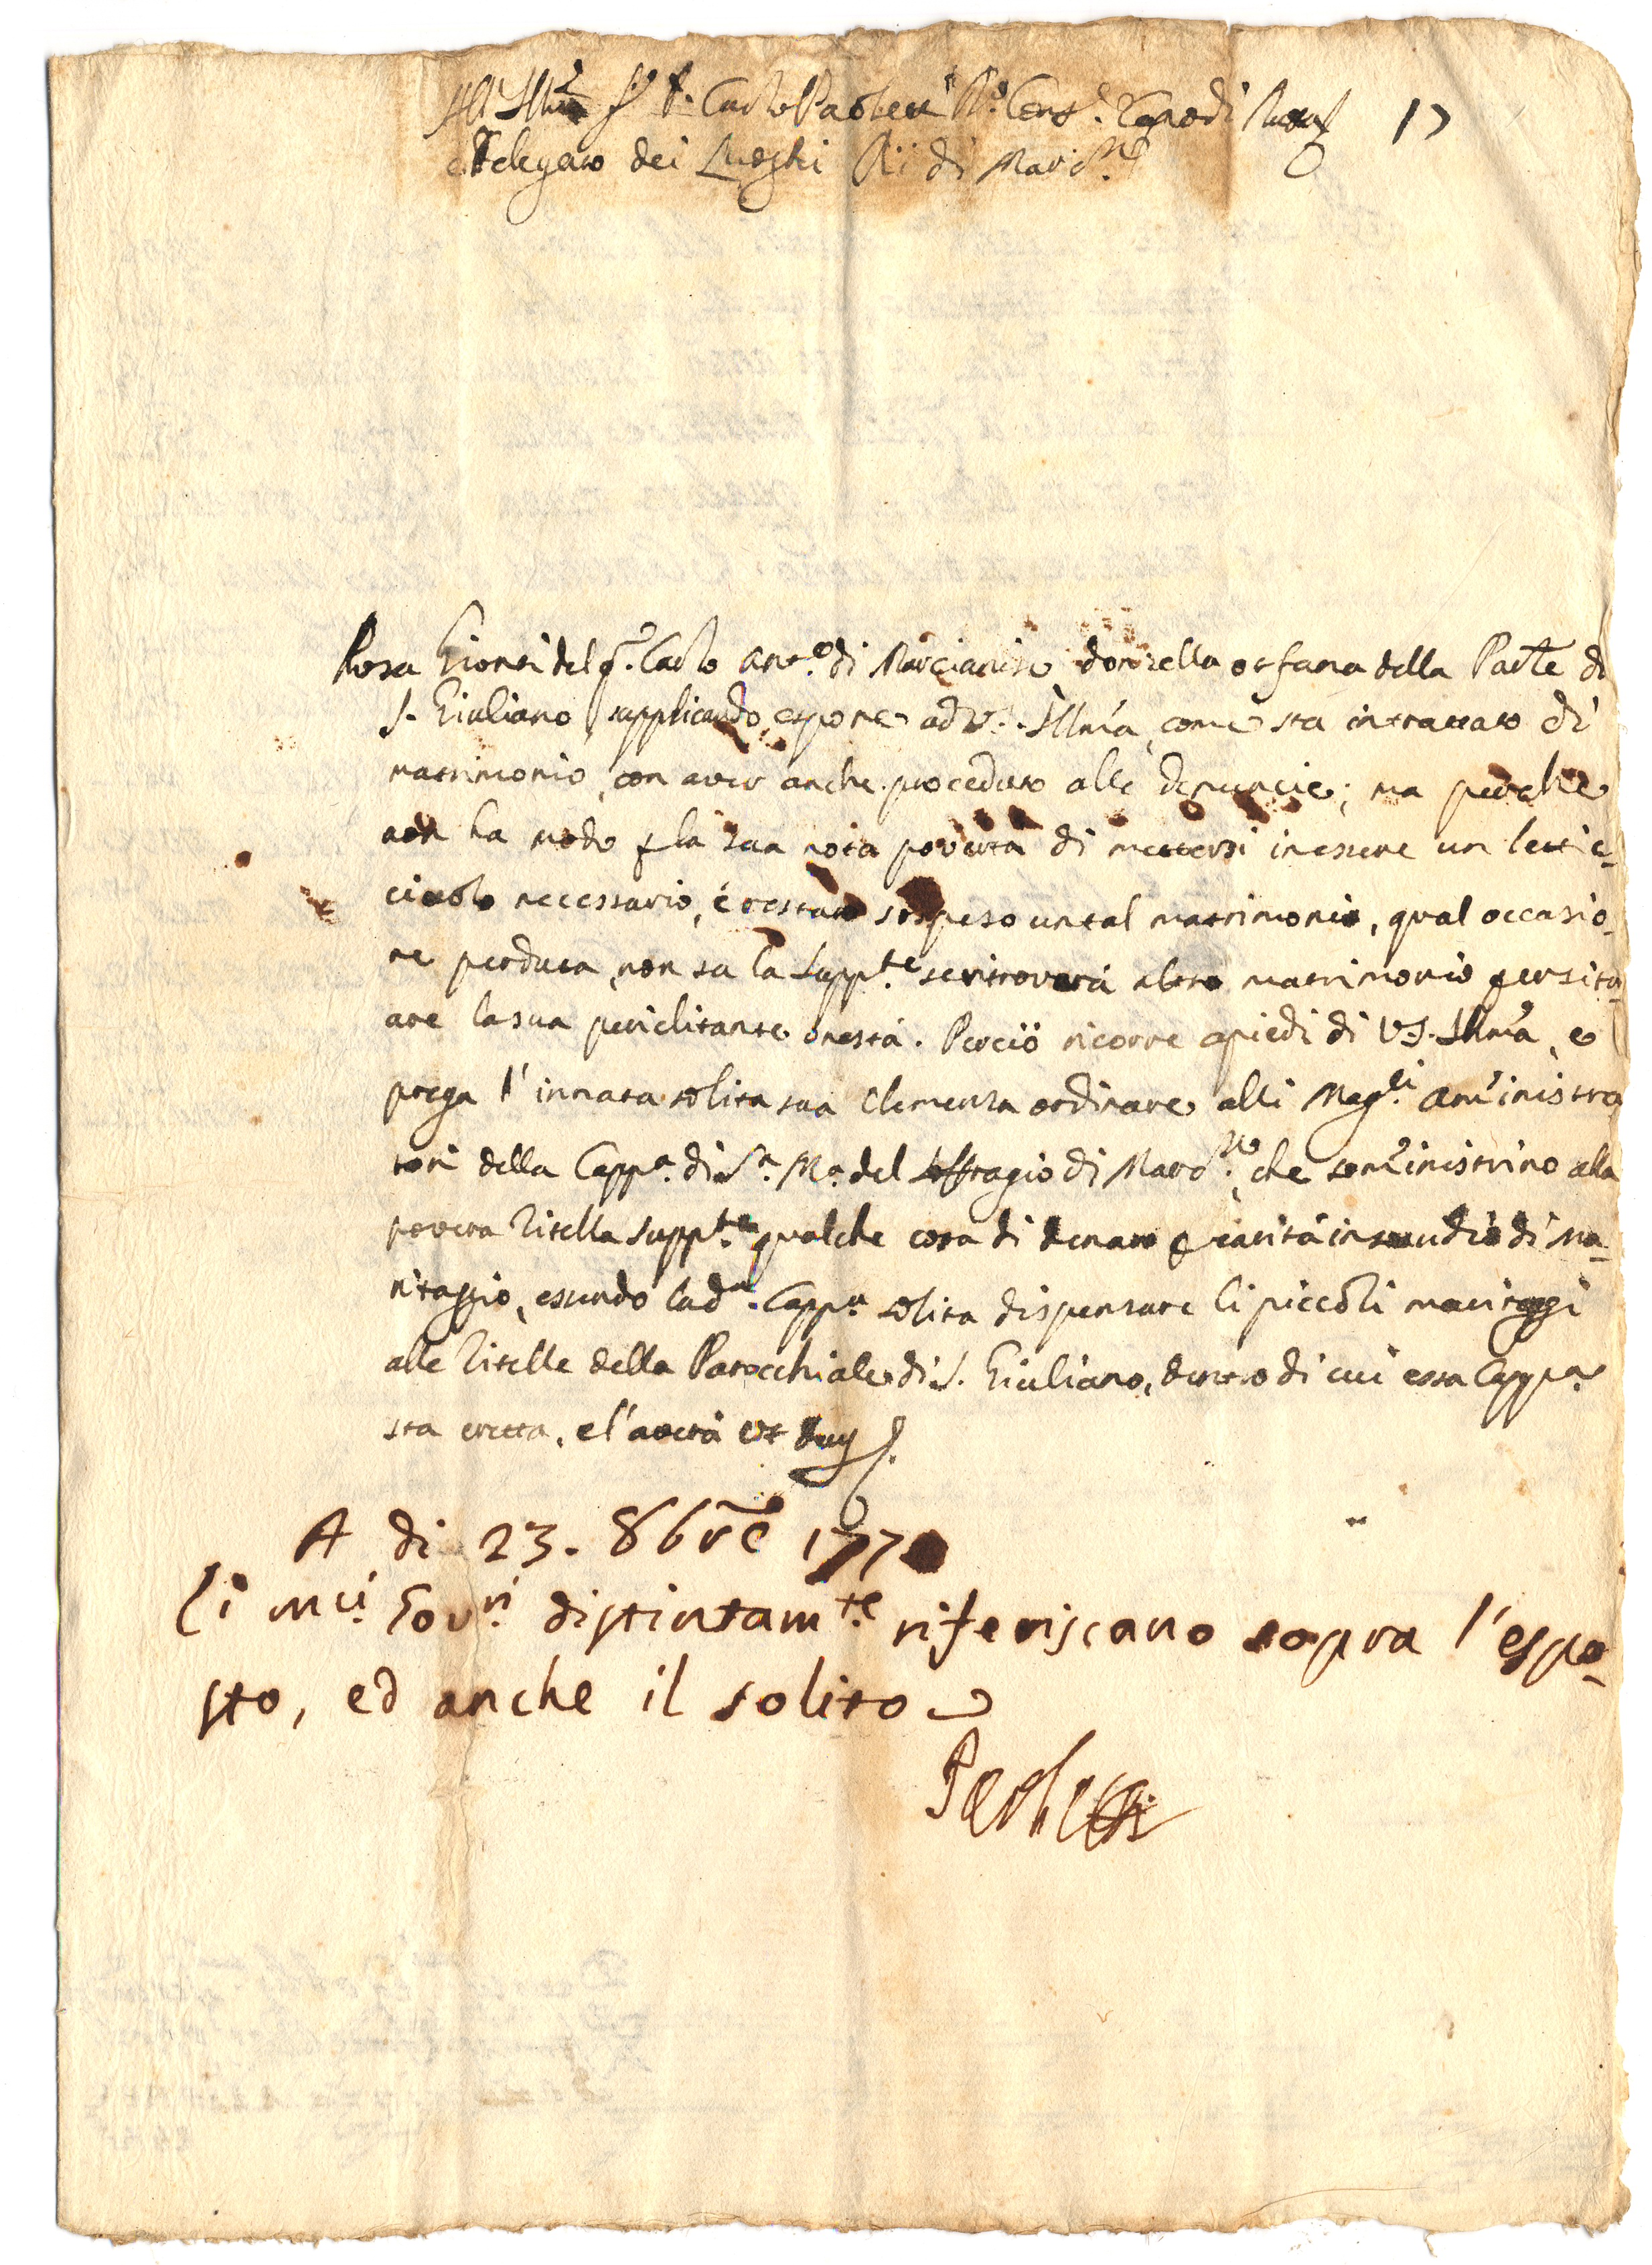 All'Illmo Sr D. Carlo Paoletti Ro Consre Capo di Ruota 17
e Delegato dei Luoghi Pii di Marcne
Rosa Gionti del qm Carlo Anto di Marcianise donzella orfana della Parte di
S. Giuliano supplicando espone ad V.S. Illma, come sta in trattato di
matrimonio, con aver anche proceduto alle denuncie; ma perche
non ha modo p la sua nota povertà di mettersi in essere un lettic-
ciuolo necessario, è restato sospeso un tal matrimonio, qual occasio-
ne perduta, non sa la Suppte se ritroverà altro matrimonio per situ-
are la sua periclitante onestà. Perciò ricorre a piedi di V.S. Illma, e
prega l'innata solita sua Clemenza ordinare alli Magci Aministra
tori della Cappa di Sa Ma del Soffragio di Marcne, che somministrino alla
povera Zitella Suppte qualche cosa di denaro p carità in sussidio di ma-
ritaggio, essendo la da Cappa solita dispensare li piccoli maritaggi
alle Zitelle della Parocchiale di S. Giuliano, dentro di cui essa Cappa
sta eretta, e l'averà ut Deus
A di 23. 8bre 177
Li mci Govri distintamte riferiscano sopra l'espo-
sto, ed anche il solito
Paoletti